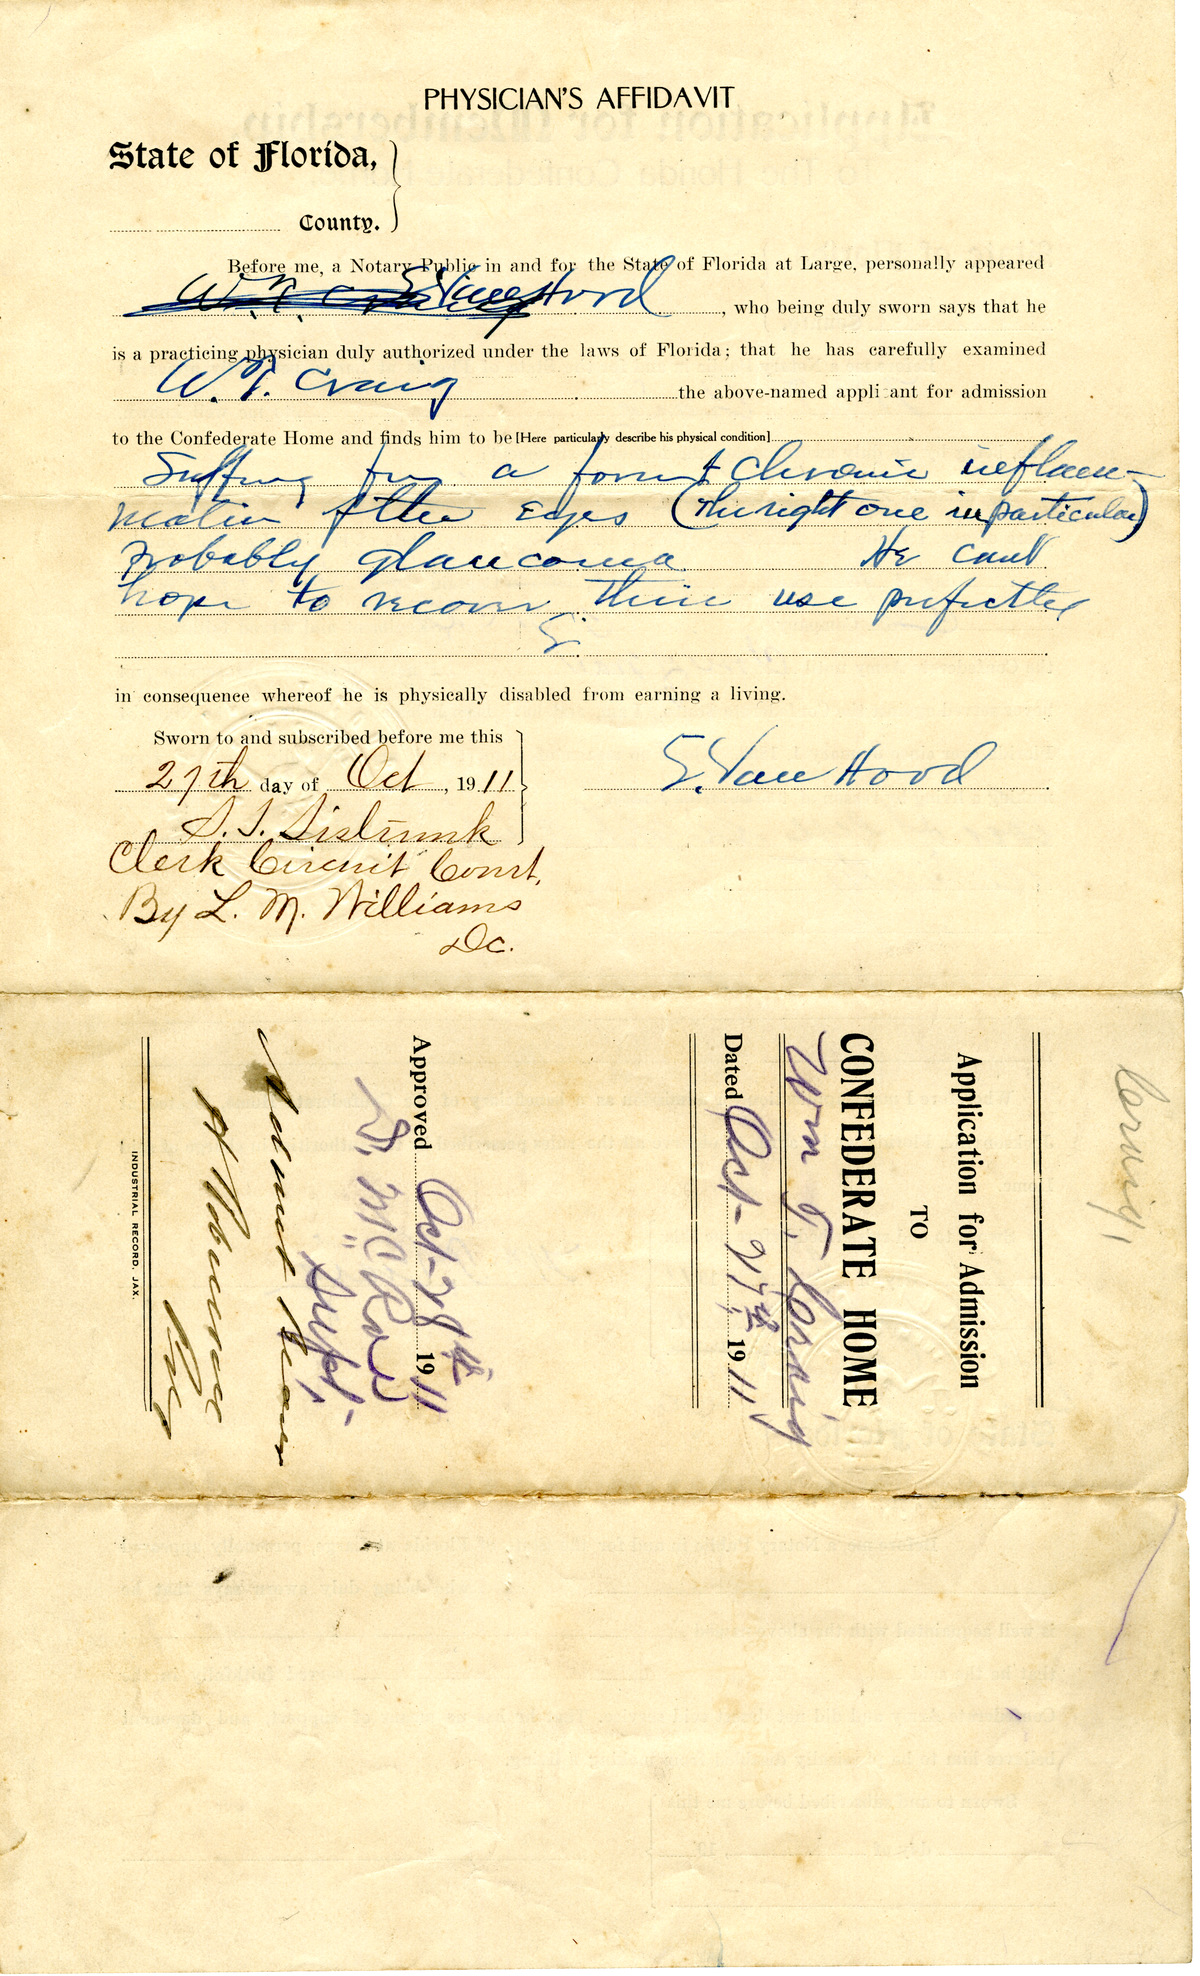 PHYSICIAN'S AFFIDAVIT
State of Florida,
County.
Before me, a Notary Public in and for the State of Florida at Large, personally appeared
W. T. Craig E. Van Hood, who being duly sworn says that he
is a practicing physician duly authorized under the laws of Florida; that he has carefully examined
W. T. Craig the above-named applicant for admission
to the Confederate Home and finds him to be [Here particularly describe his physical condition]
Suffring from a form of chronic inflam-
mation of the Eyes (the right one in particular)
probably glaucoma He cant
hope to recover their use perfectly
in consequence whereof he is physically disabled from earning a living.
Sworn to and subscribed before me this
27th day of Oct, 1911
E. Van Hood
S. T. Sistrunk
Clerk Circuit Court,
By L. M. Williams
Dc.
Craig,
Application for Admission
TO
CONFEDERATE HOME
Wm T. Craig
Dated Oct- 27th 1911
Approved Oct-28th 1911
Supt-
INDUSTRIAL RECORD, JAX.